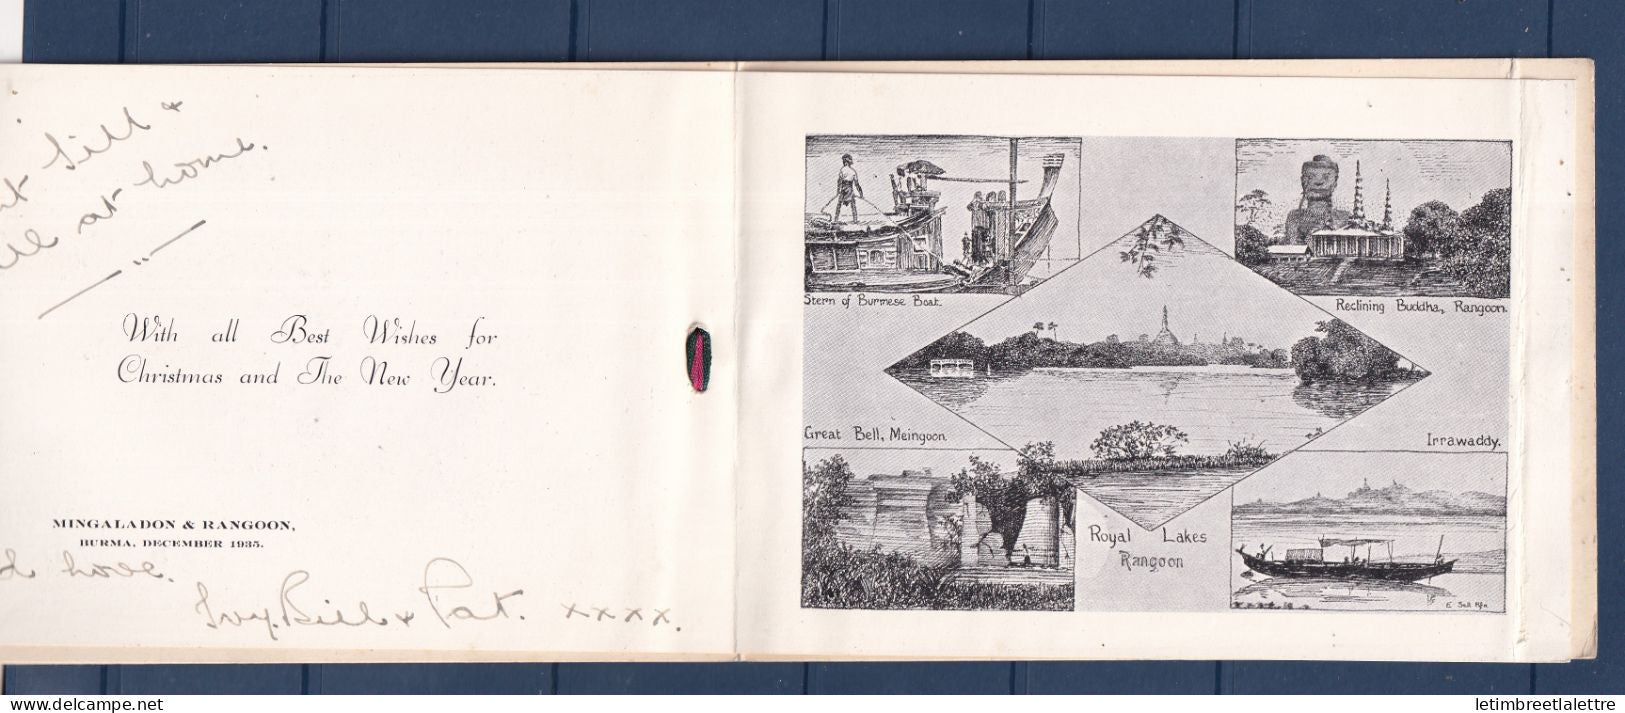 Sill &
at home.
With all Best Wishes for
Christmas and The New Year.
MINGALADON & RANGOON,
BURMA, DECEMBER 1935.
Ivy. Bill & Pat. xxxx.
Stern of Burmese Boat.
Reclining Buddha, Rangoon.
Great Bell, Meingoon
Irrawaddy.
Royal Lakes
Rangoon
delcampe.net
letimbreetlalettre